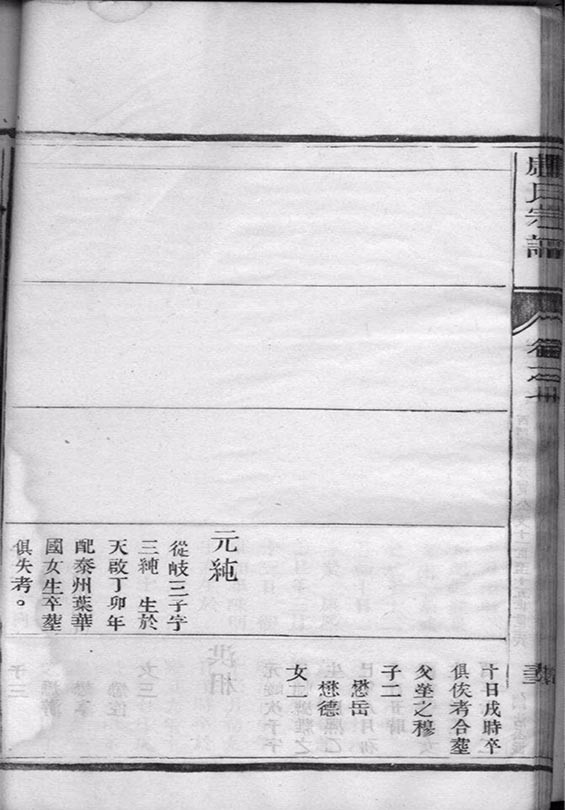 盧氏宗譜
元純
從岐三子字
三純 生於
天啟丁卯年
配泰州葉華
國女生卒塟
俱失考。
十日戌時卒
俱俟考合塟
父塋之穆
子二
懋岳
懋德
女二